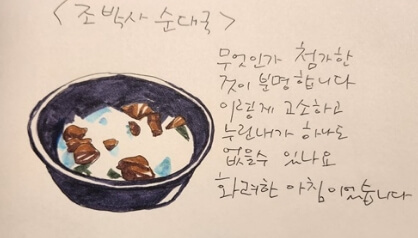 <조박사 순대국>
무엇인가 첨가한
것이 분명합니다
이렇게 고소하고
누린내가 하나도
없을수 있나요
화려한 아침이었습니다